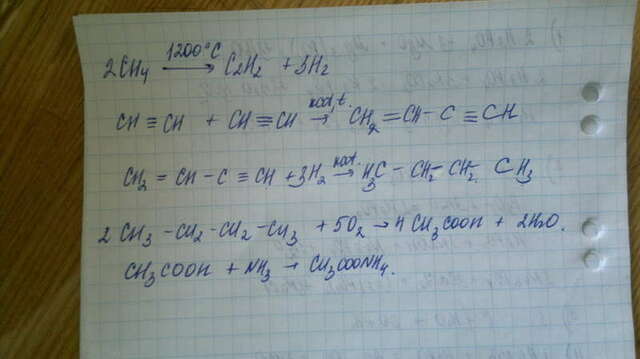 2CH4 1200°C → C2H2 + 3H2
CH ≡ CH + CH ≡ CH кат, t → CH2 = CH - C ≡ CH
CH2 = CH - C ≡ CH + 3H2 кат. → H3C - CH2 - CH2 - CH3
2 CH3 - CH2 - CH2 - CH3 + 5O2 → 4 CH3COOH + 2H2O.
CH3COOH + NH3 → CH3COONH4.